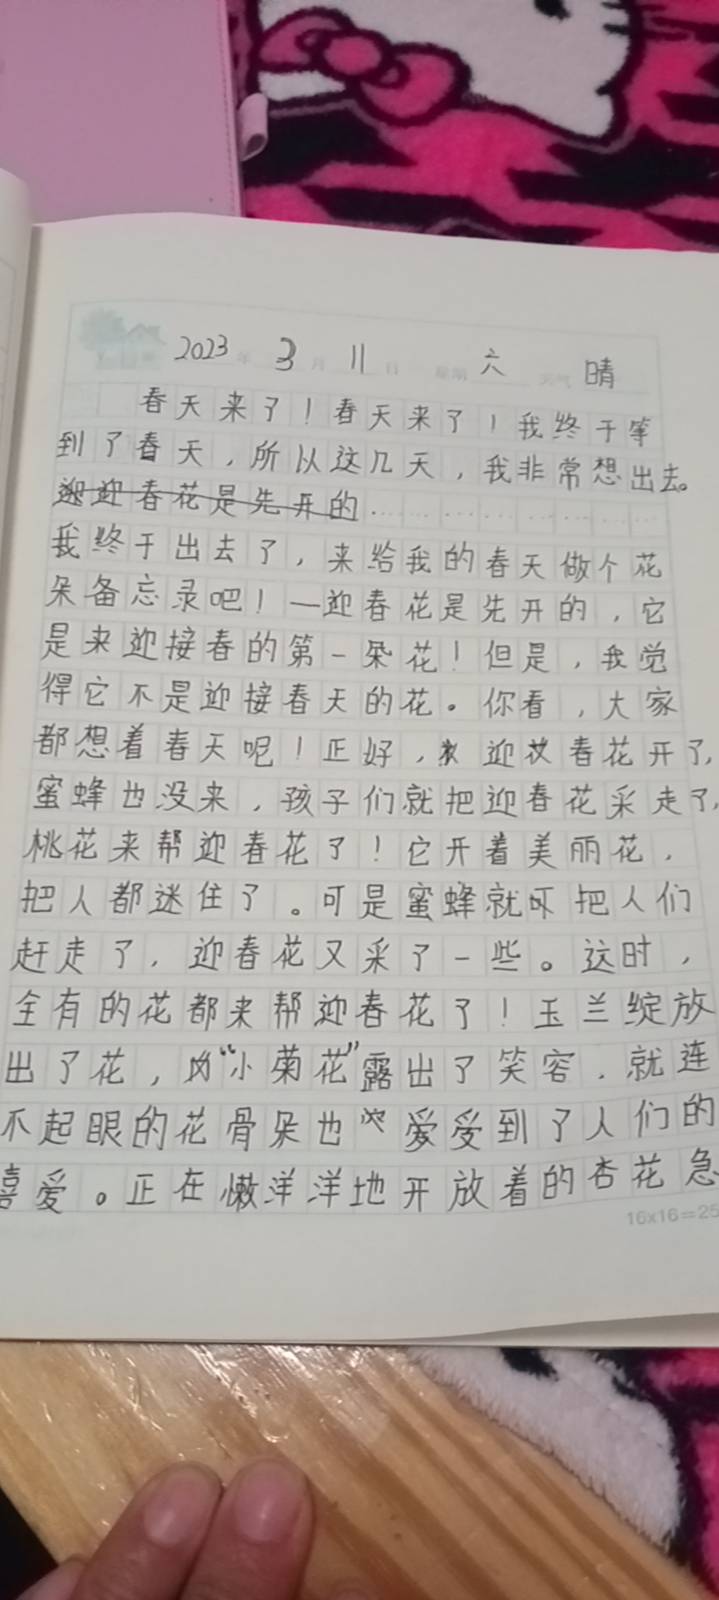 2023年 3月 11日 星期 六 天气 晴
春天来了！春天来了！我终于等
到了春天，所以这几天，我非常想出去。
迎春花是先开的……
我终于出去了，来给我的春天做个花
朵备忘录吧！—迎春花是先开的，它
是来迎接春的第一朵花！但是，我觉
得它不是迎接春天的花。你看，大家
都想着春天呢！正好，迎春花开了，
蜜蜂也没来，孩子们就把迎春花采走了，
桃花来帮迎春花了！它开着美丽花，
把人都迷住了。可是蜜蜂就把人们
赶走了，迎春花又采了一些。这时，
全有的花都来帮迎春花了！玉兰绽放
出了花，“小菊花”露出了笑容．就连
不起眼的花骨朵也爱受到了人们的
喜爱。正在懒洋洋地开放着的杏花急
16×16=25